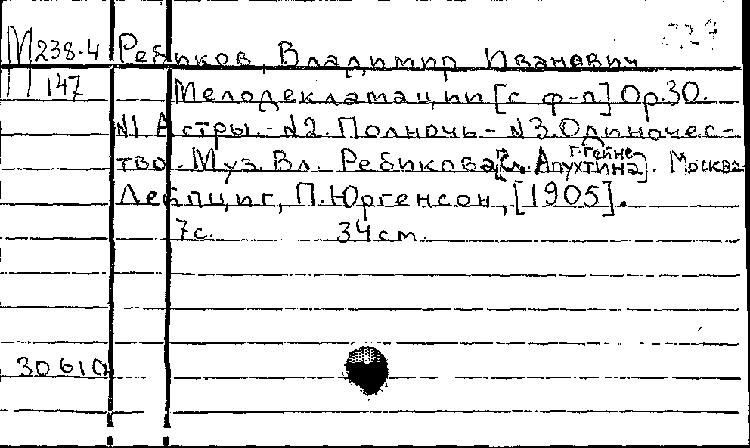 М238.4 Ребиков, Владимир Иванович
П147 Мелодекламации [с ф-п] Ор.30.
N1 Астры.-N2. Полночь.-N3. Одиночес-
тво. Муз. Вл. Ребикова [сл. Апухтина, Г. Гейне]. Москва
Лейпциг, П. Юргенсон, [1905].
7с. 34 cm.
30610